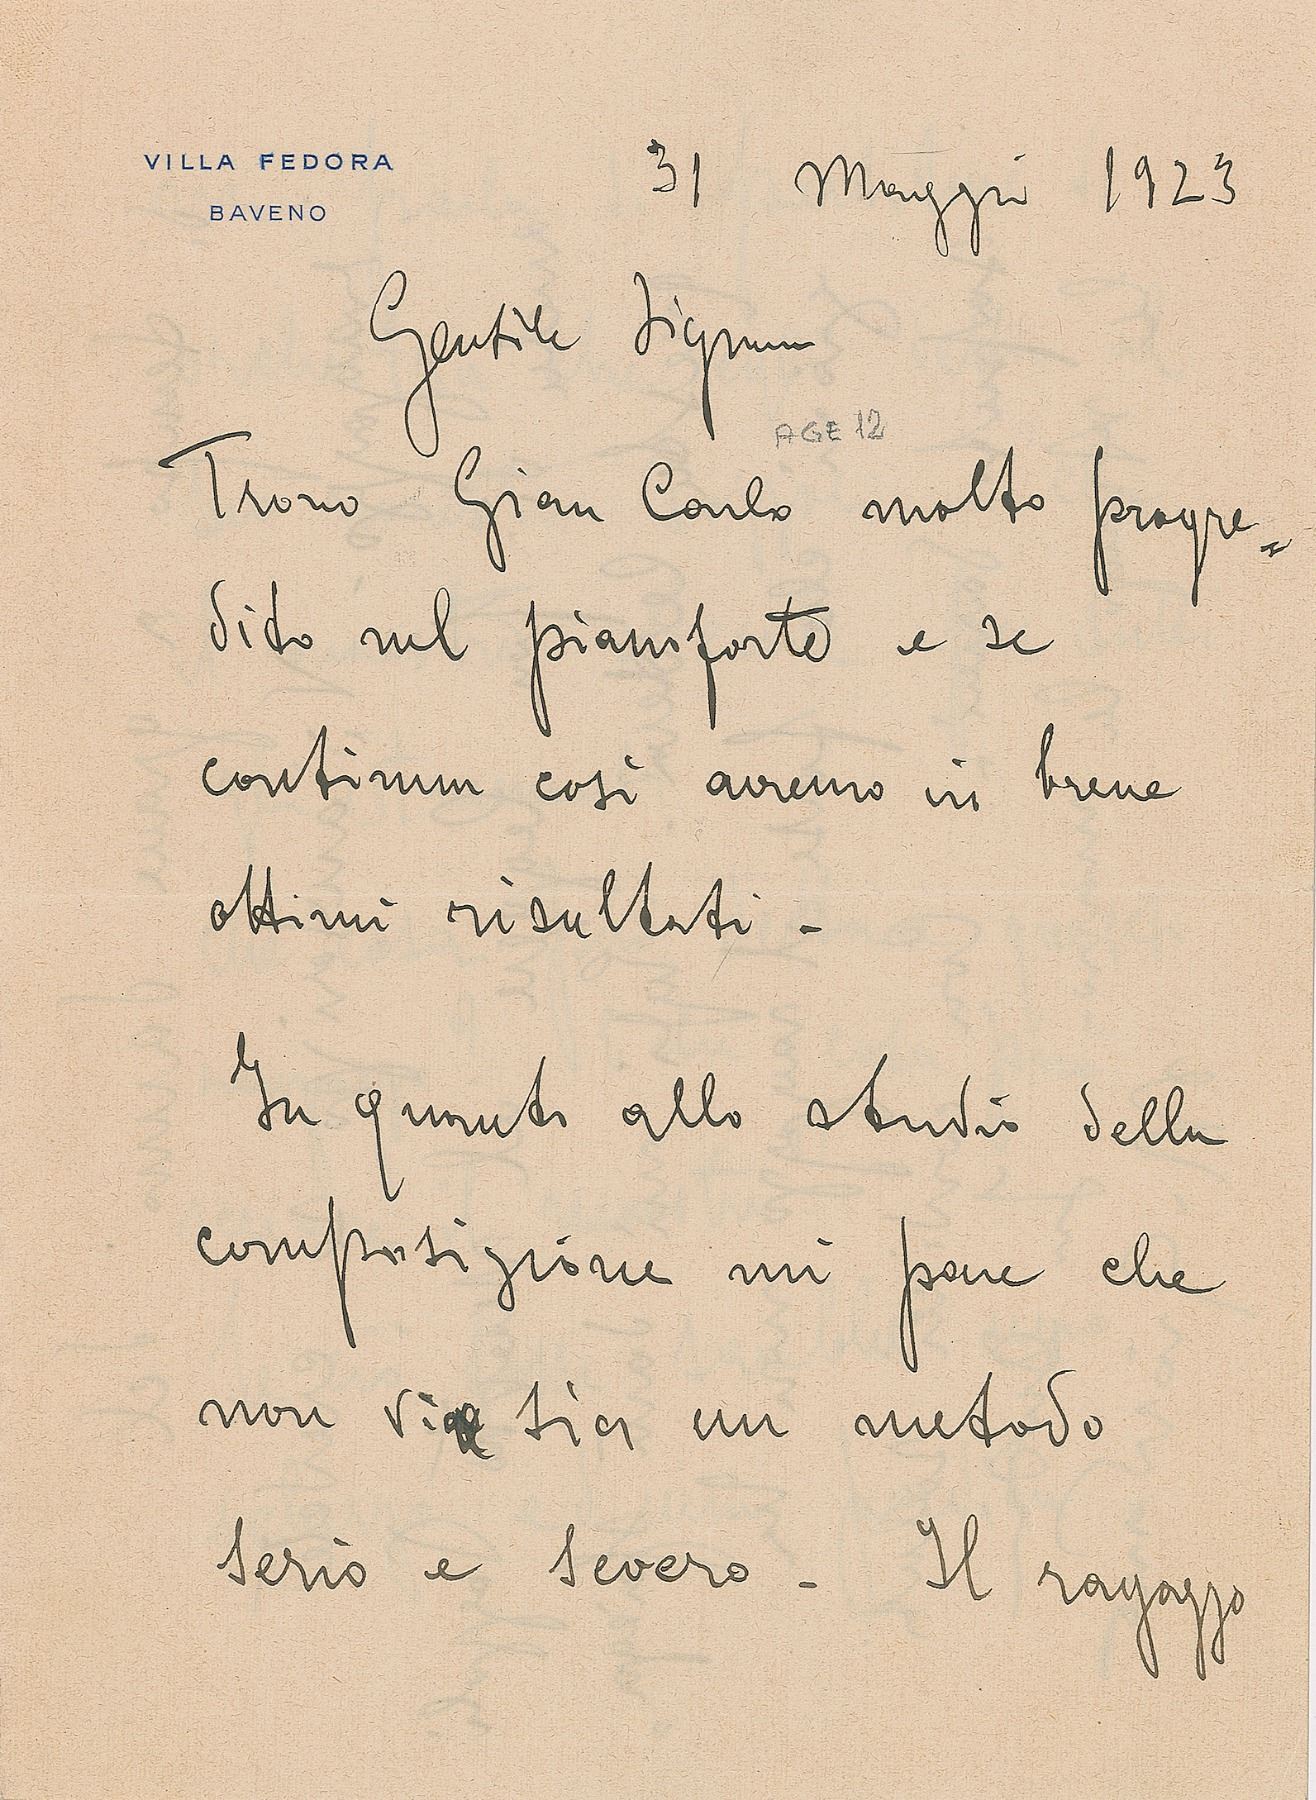 VILLA FEDORA
BAVENO
31 Maggio 1923
Gentile Signora
AGE 12
Trovo Gian Carlo molto progre=
dito nel pianoforte e se
continua così avremo in breve
ottimi risultati -
In quanto allo studio della
composizione mi pare che
non vi sia un metodo
serio e severo - Il ragazzo